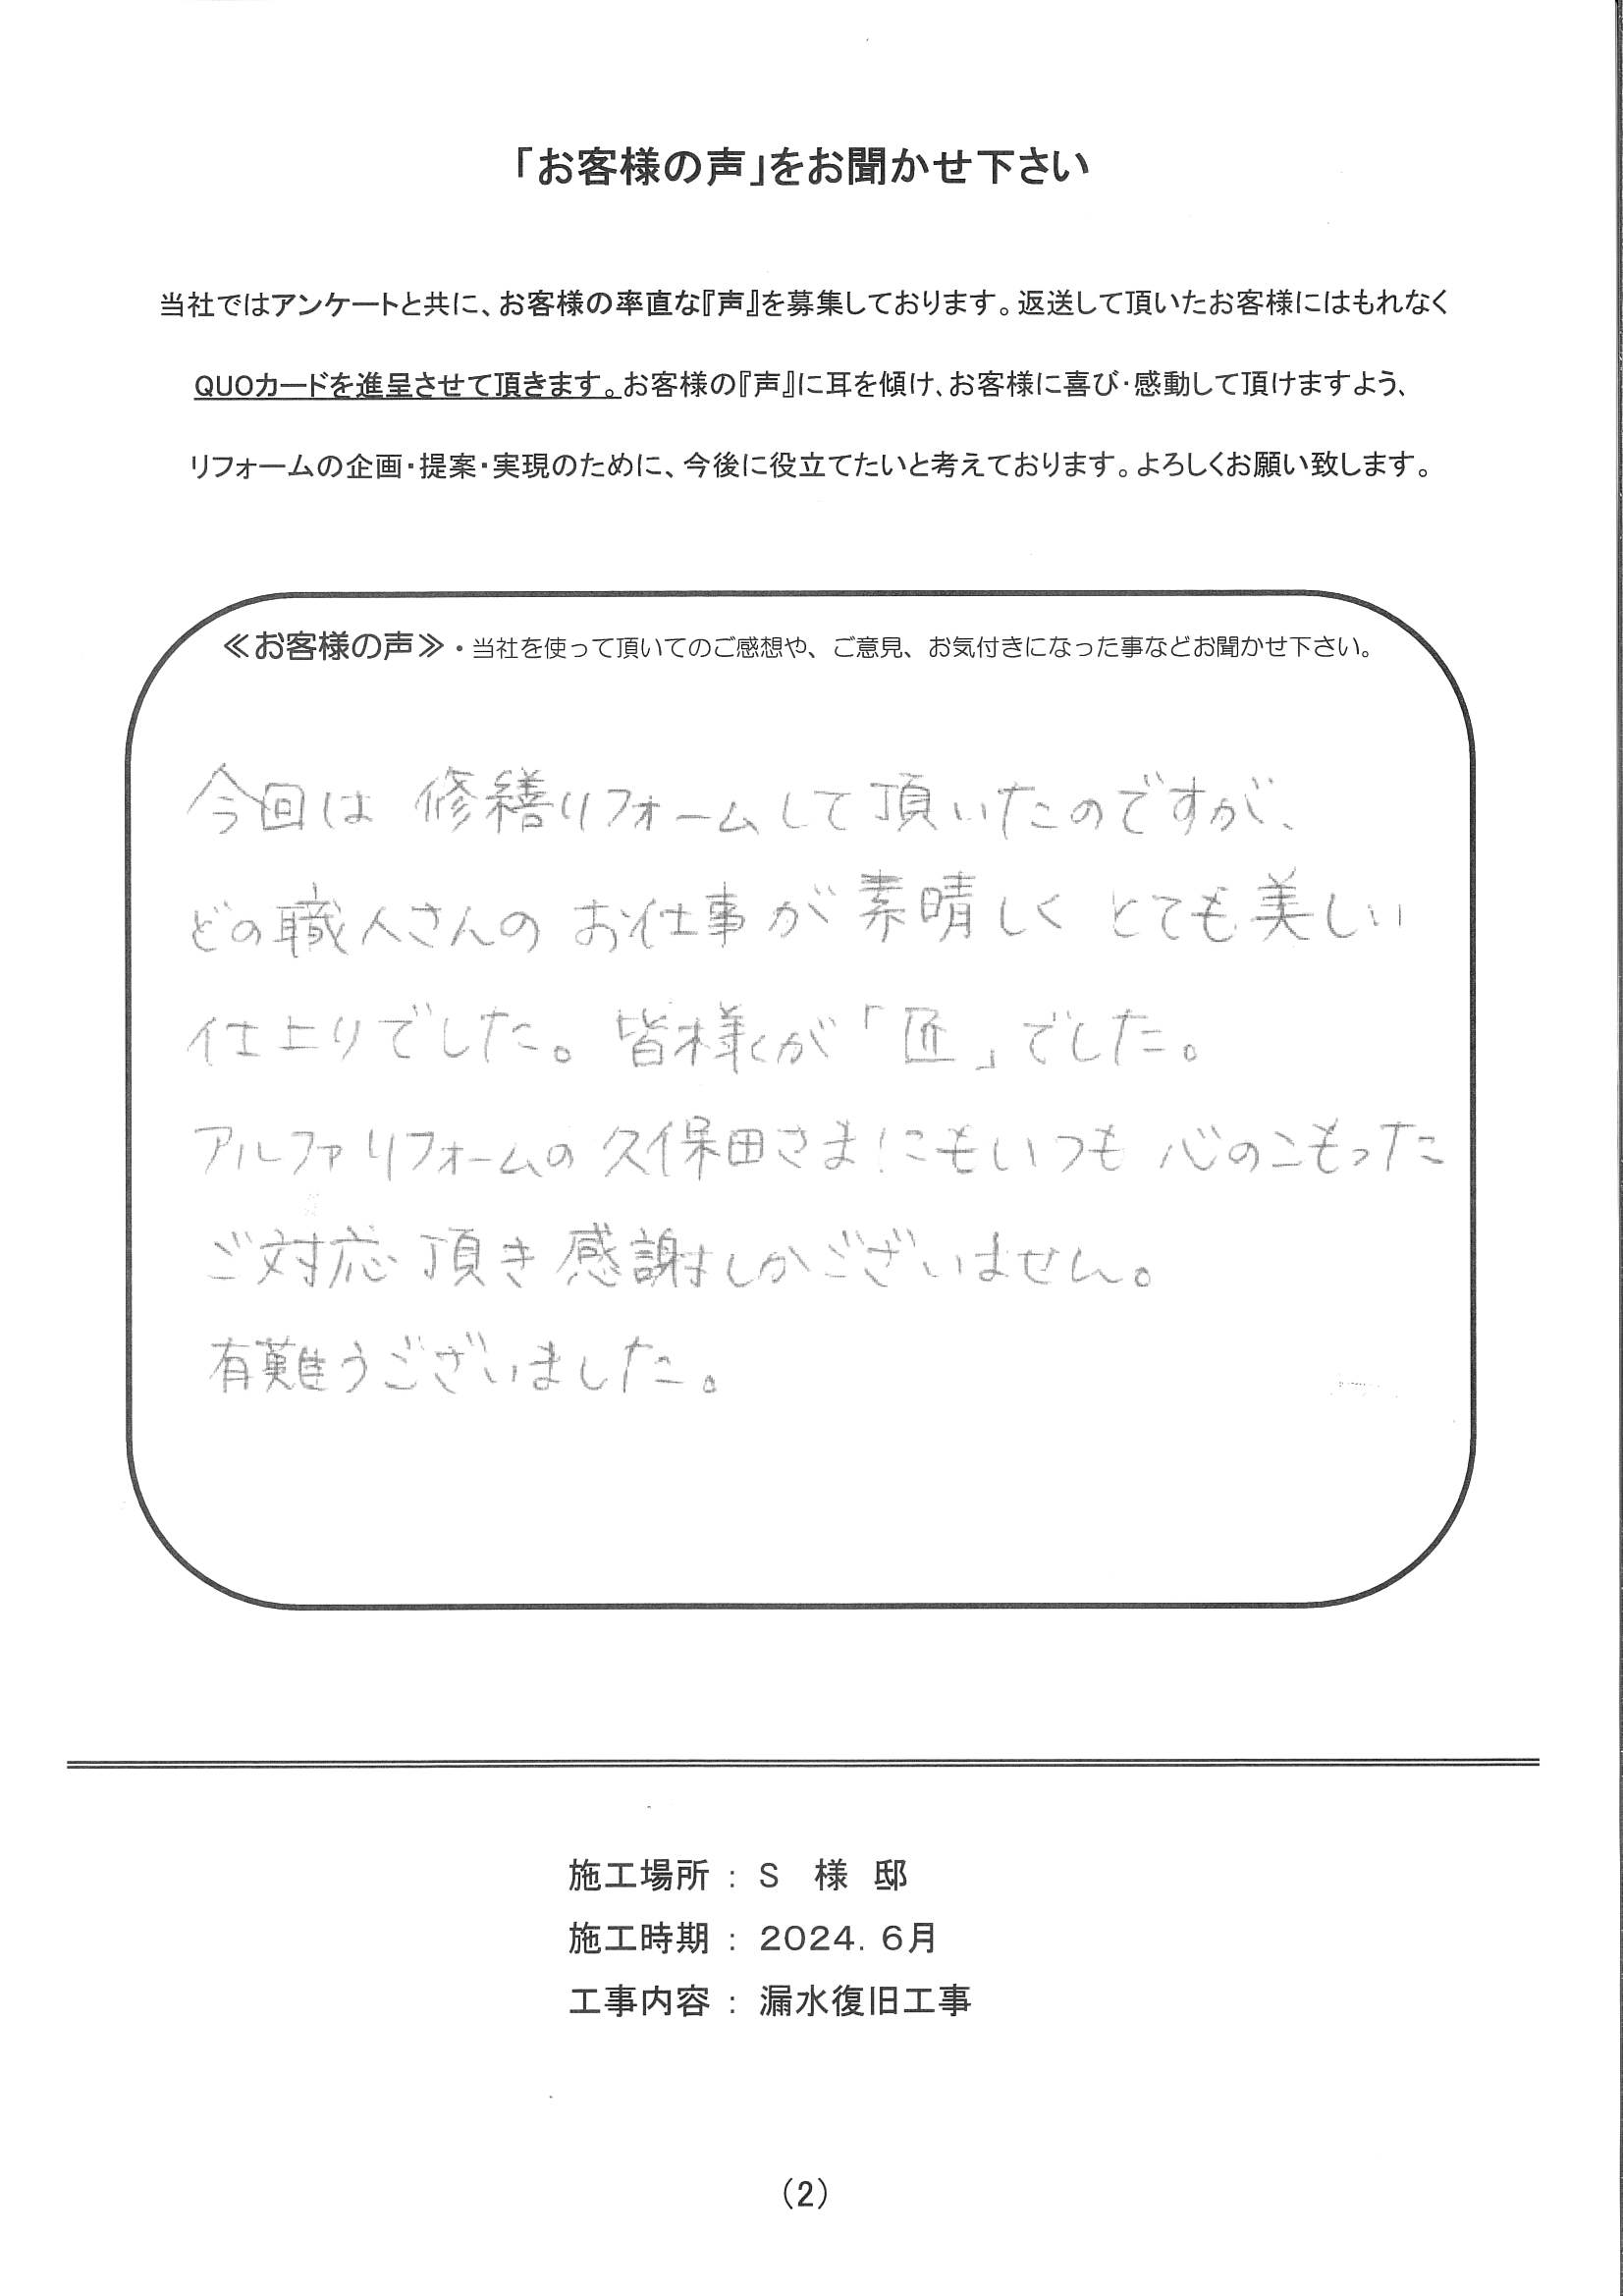 「お客様の声」をお聞かせ下さい
当社ではアンケートと共に、お客様の率直な『声』を募集しております。返送して頂いたお客様にはもれなく
QUOカードを進呈させて頂きます。お客様の『声』に耳を傾け、お客様に喜び・感動して頂けますよう、
リフォームの企画・提案・実現のために、今後に役立てたいと考えております。よろしくお願い致します。
≪お客様の声≫・当社を使って頂いてのご感想や、ご意見、お気付きになった事などお聞かせ下さい。
今回は 修繕リフォームして頂いたのですが、
どの職人さんの お仕事が素晴しく とても美しい
仕上りでした。皆様が「匠」でした。
アルファリフォームの 久保田さまにもいつも 心のこもった
ご対応 頂き 感謝しかございません。
有難うございました。
施工場所 : S 様 邸
施工時期 : 2024. 6月
工事内容 : 漏水復旧工事
(2)